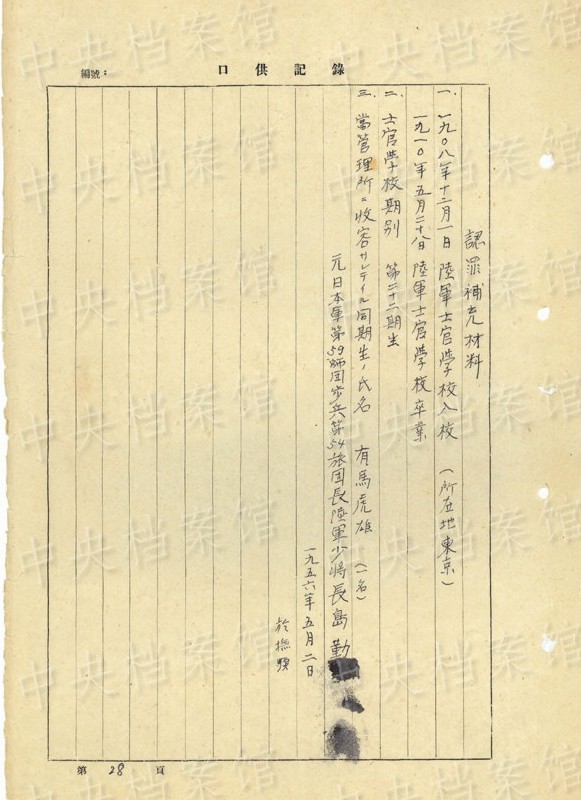 口供記錄
編號：
認罪補充材料
一、一九〇八年十二月一日 陸軍士官學校入校 （所在地東京）
一九一〇年五月二十八日 陸軍士官學校卒業
二、士官學校期别 第二十二期生
三、當管理所ニ收容サレテイル同期生ノ氏名 有馬虎雄 （一名）
元日本軍第59師団步兵第54旅団長陸軍少將長島勤
一九五六年五月二日
於撫順
第28頁
中央档案馆